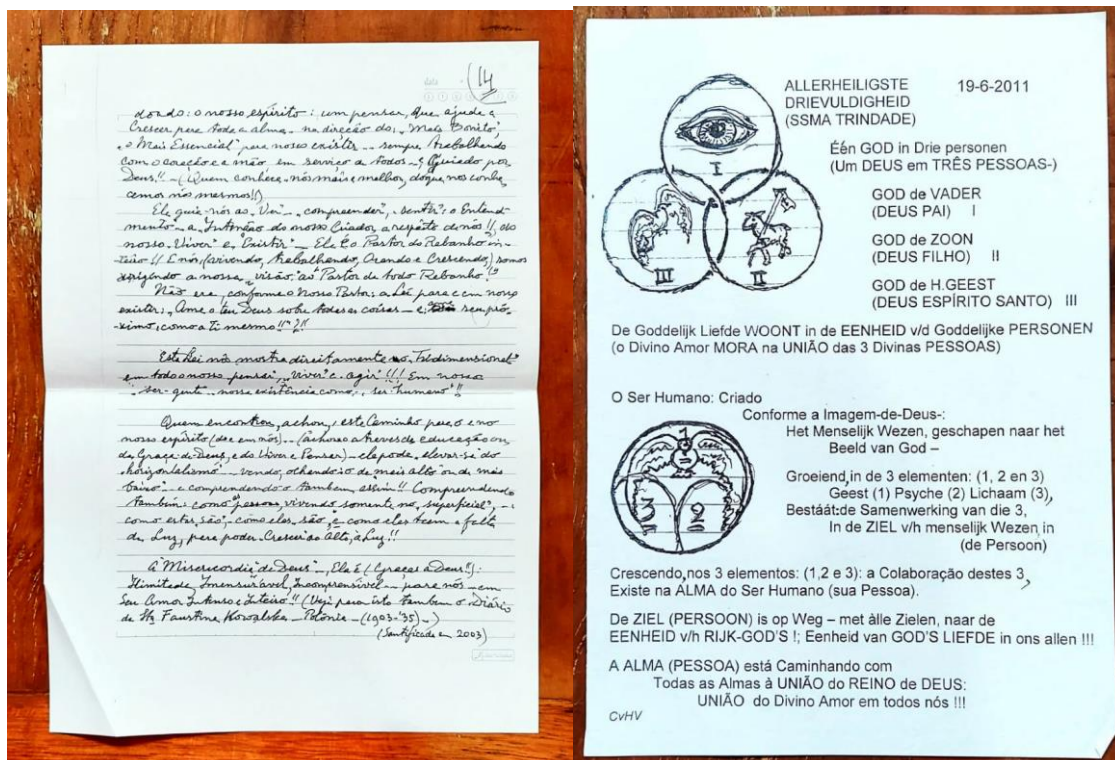 14
doado: o nosso espírito: um pensar, que ajude a
Crescer para toda a alma - na direção do: „Mais Bonito",
„o Mais Essencial" para nosso existir - sempre trabalhando
com o coração e a mão em serviço a todos - e guiado por
Deus!! - (Quem conhece - nós mais e melhor, do que nos conhe-
cemos nós mesmos!!)
Ele guia-nós ao „Ver" - „compreender", „sentir": o Entend-
mento - a Intenção do nosso Criador, a respeito de nós!!, do
nosso „Viver" e „Existir" - Ele É o Pastor do Rebanho in-
teiro!! E nós, (vivendo, trabalhando, Orando e Crescendo,) somos
dirigindo a nossa „visão" ao "Pastor de todo Rebanho"!!
Não era, conforme o Nosso Pastor: a Lei para e em nosso
existir: „Ame a teu Deus sobre todas as coisas - e: seu pró-
-ximo, como a ti mesmo!!"?!!
Esta Lei nós mostra direitamente o „Tridimensional"
em todo o nosso pensar, „viver" e „agir"!!! Em nossa
„ser-gente" - nossa existência como „ser humano"!!
Quem encontrou, achou, este Caminho para o e no
nosso espírito (doe em nós) - (achou-o através de educação ou
da Graça-de-Deus, e do Viver e Pensar) - ele pode, elevar-se do
„horizontalismo" - vendo, olhando-o de mais alto ou de mais
baixo" - e compreendendo o também, assim!! Compreendendo
também: como as pessoas, vivendo somente no „superficial", -
como estas, são", como eles, são, e como eles teem a falta
da Luz, para poder - Crescer ao Alto, à Luz!!
A "Misericórdia de Deus" -, Ela É (Graças a Deus!!):
Ilimitada, Imensurável, Incomprensível - para nós - em
Seu Amor Intenso e Inteiro!! (Veja para isto também o Diário
da Sta Faustina Kowalska - Polônia - (1903-'35) -)
(Santificada en 2003)
ALLERHEILIGSTE 19-6-2011
DRIEVULDIGHEID
(SSMA TRINDADE)
Één GOD in Drie personen
(Um DEUS em TRÊS PESSOAS-)
GOD de VADER
(DEUS PAI) I
GOD de ZOON
(DEUS FILHO) II
GOD de H.GEEST
(DEUS ESPÍRITO SANTO) III
I
III II
De Goddelijk Liefde WOONT in de EENHEID v/d Goddelijke PERSONEN
(o Divino Amor MORA na UNIÃO das 3 Divinas PESSOAS)
O Ser Humano: Criado
Conforme a Imagem-de-Deus-:
Het Menselijk Wezen, geschapen naar het
Beeld van God –
1
3 2
Groeiend,in de 3 elementen: (1, 2 en 3)
Geest (1) Psyche (2) Lichaam (3),
Bestáát:de Samenwerking van die 3,
In de ZIEL v/h menselijk Wezen, in
(de Persoon)
Crescendo,nos 3 elementos: (1,2 e 3): a Colaboração destes 3,
Existe na ALMA do Ser Humano (sua Pessoa).
De ZIEL (PERSOON) is op Weg – met àlle Zielen, naar de
EENHEID v/h RIJK-GOD'S !; Eenheid van GOD'S LIEFDE in ons allen !!!
A ALMA (PESSOA) está Caminhando com
Todas as Almas à UNIÃO do REINO de DEUS:
UNIÃO do Divino Amor em todos nós !!!
CvHV